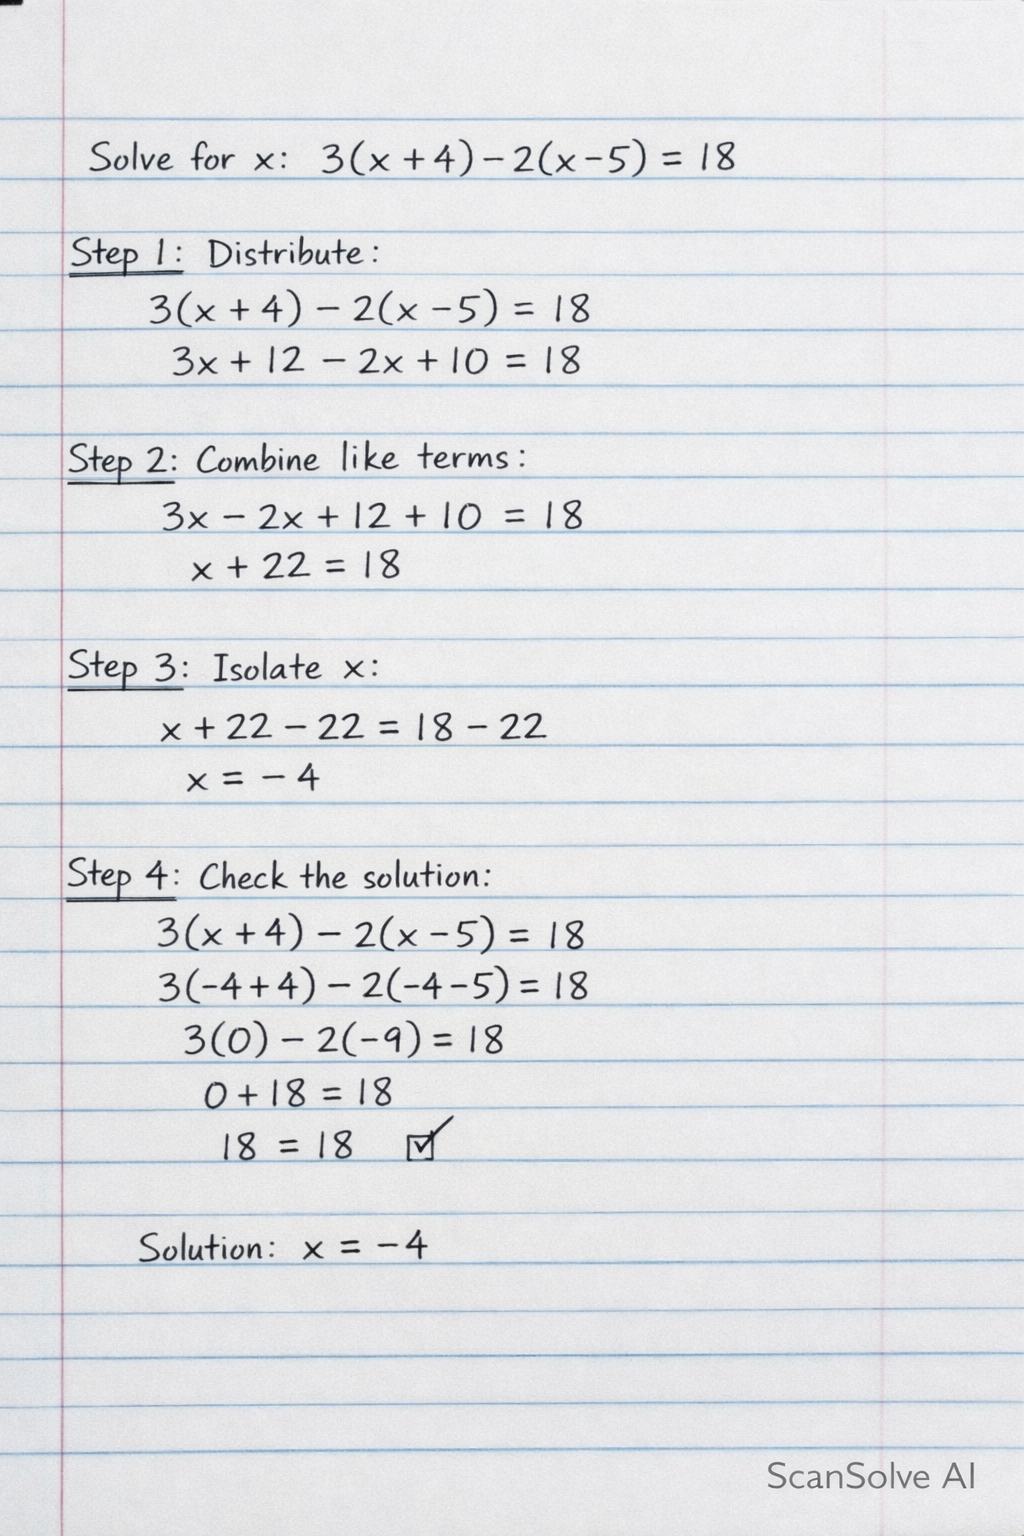 Solve for x: 3(x + 4) − 2(x − 5) = 18
Step 1: Distribute:
3(x + 4) − 2(x − 5) = 18
3x + 12 − 2x + 10 = 18
Step 2: Combine like terms:
3x − 2x + 12 + 10 = 18
x + 22 = 18
Step 3: Isolate x:
x + 22 − 22 = 18 − 22
x = − 4
Step 4: Check the solution:
3(x + 4) − 2(x − 5) = 18
3(−4 + 4) − 2(−4 − 5) = 18
3(0) − 2(−9) = 18
0 + 18 = 18
18 = 18 ☑
Solution: x = −4
ScanSolve AI